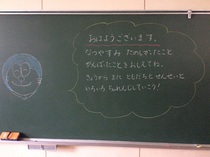 おはようございます。
なつやすみ たのしかったこと
がんばったことをおしえてね。
きょうから また ともだちとせんせいと
いろいろ ちゃれんじしていこう!